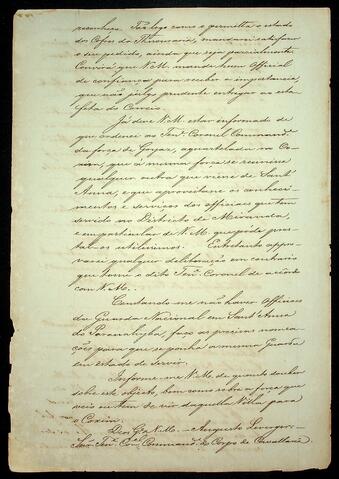 reconheço. Tão logo como o permitta o estado
dos Cofres da Thesouraria, mandarei satisfazer
o seu pedido, ainda que seja parcialmente
Convirá que V. M. mande hum Official
de confiança para receber a importancia,
que não julgo prudente entregar ao esta-
feta do Correio.
Já deve V. M. estar informado de
que ordenei ao Tenᵉ. Coronel Commandᵉ.
da força de Goyaz, aquartelada no Co-
xim, que á mesma força se reunisse
qualquer outra que viesse de Sant'
Anna, e que aproveitasse os conheci-
mentos e serviços dos officiaes que tem
servido no Districto de Miranda,
e em particular de V. M. que póde pres-
tal-os utilissimos. Entretanto appro-
varei qualquer deliberação em contrario
que tome o dito Tenᵉ. Coronel de accordo
com V. M.
Constando-me não haver Officiaes
da Guarda Nacional em Sant'Anna
do Paranahyba, faço as precisas nomea-
ções para que se ponha a mesma Guarda
em estado de servir.
Informe-me V. M. de quanto souber
sobre este objecto, bem como sobre a força que
veio ou tem de vir daquella Villa para
o Coxim.
Deos Gᵉ. a V. M. — Augusto Leverger —
Senʳ. Tenᵉ. Coᵉˡ. Commandᵉ. do Corpo de Cavallaria